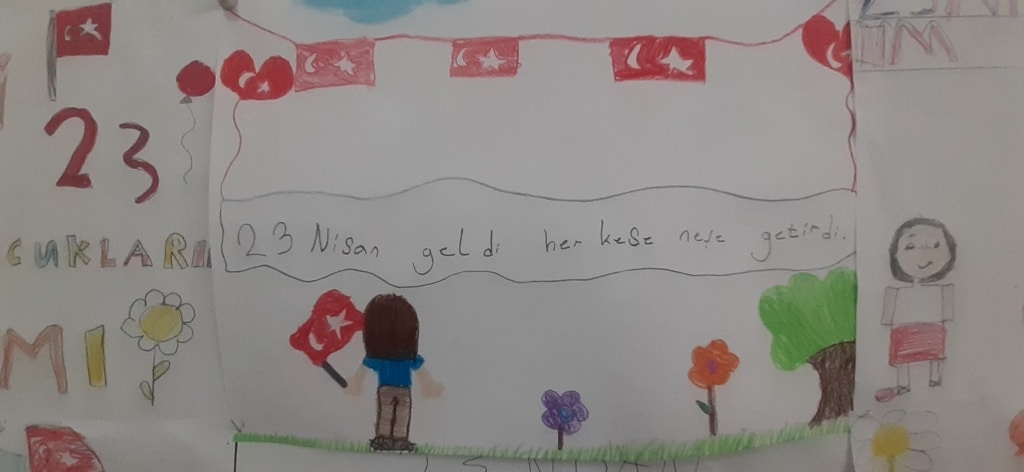 23
CUKLARI
MI
23 Nisan geldi herkese neşe getirdi.
IM